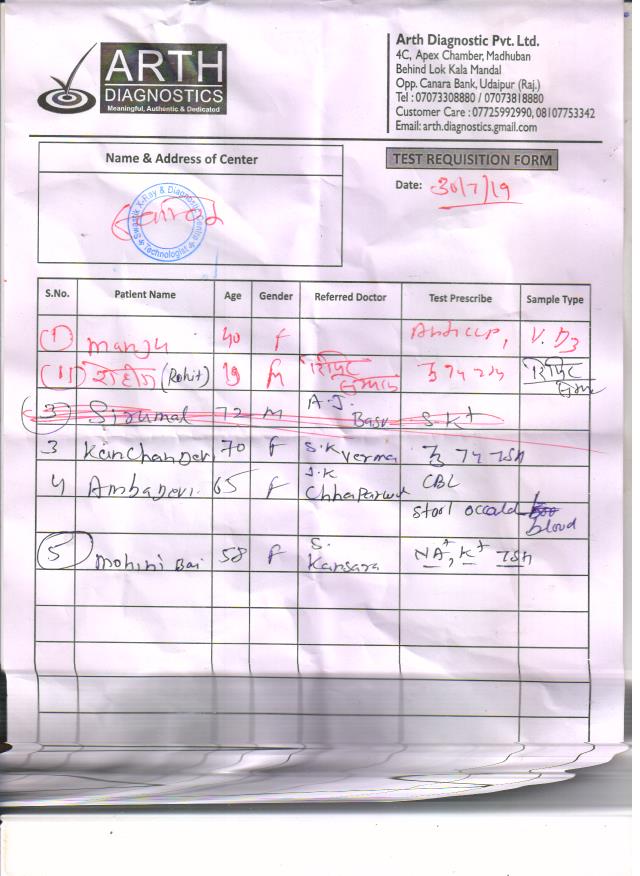 ARTH
DIAGNOSTICS
Meaningful, Authentic & Dedicated
Arth Diagnostic Pvt. Ltd.
4C, Apex Chamber, Madhuban
Behind Lok Kala Mandal
Opp. Canara Bank, Udaipur (Raj.)
Tel : 07073308880 / 07073818880
Customer Care : 07725992990, 08107753342
Email: arth.diagnostics.gmail.com
Name & Address of Center
TEST REQUISITION FORM
Date: 30/7/19
Swastik X-Ray & Diagnostic Centre
Technologist
S.No. Patient Name Age Gender Referred Doctor Test Prescribe Sample Type
(1) Manju 40 F Anti CCP, V. D3
(Rohit) 19 M रिपिट रिपिट
3 Sirumal 72 M A.J. Basu S.K+
3 Kanchan Devi 70 F S.K Verma TSH
4 Amba Devi 65 F J.K Chhaparwal CBC
stool occald blood
5 Mohini Bai 58 F S. Kansara NA+, K+ TSH